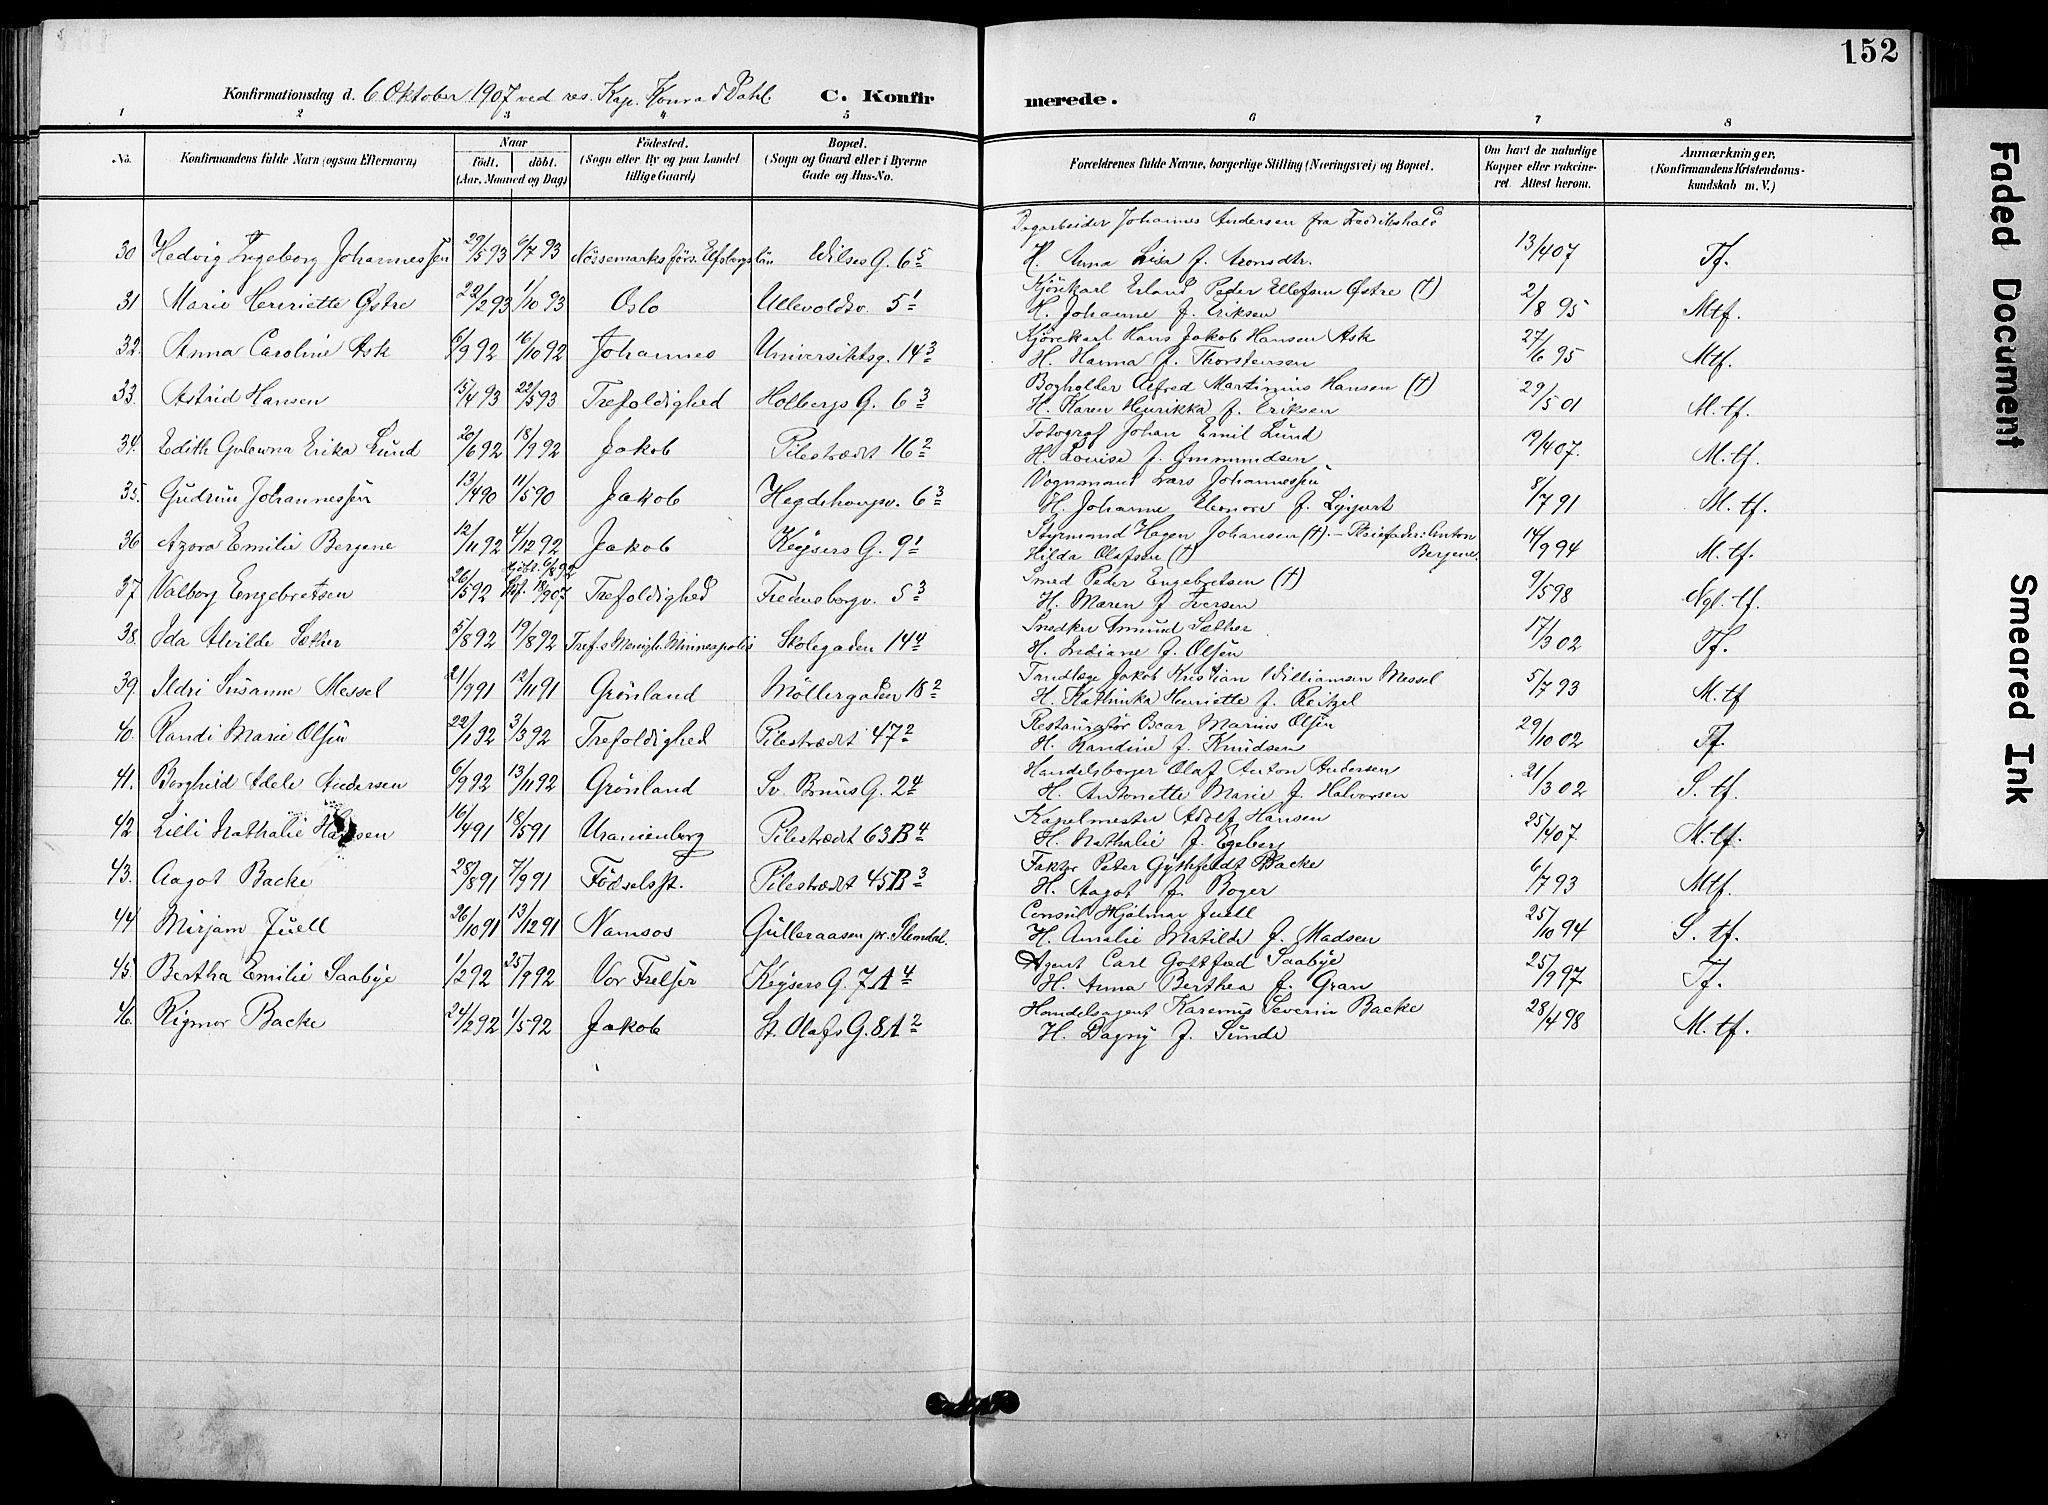 152
Konfirmationsdag d. 6 Oktober 1907 ved res. Kap. Konrad Dahl. C. Konfir merede.
1 2 3 4 5 6 7 8
No. Konfirmandens fulde Navn (ogsaa Efternavn) Naar født. døbt. (Aar, Maaned og Dag) Fødested. (Sogn eller By og paa Landet tillige Gaard) Bopæl. (Sogn og Gaard eller i Byerne Gade og Hus-No. Forældrenes fulde Navne, borgerlige Stilling (Næringsvei) og Bopæl. Om havt de naturlige Kopper eller vakcineret. Attest herom. Anmærkninger. (Konfirmandens Kristendomskundskab m. V.)
Dagarbeider Johannes Andersen fra Fredrikshald
30 Hedvig Ingeborg Johannessen 29/5 93 6/7 93 Nössemarks förs. Elfsborgs län Wilses G. 6 5 H. Anna Lisa f. Aronsdtr. 13/4 07 Tf.
Kjørekarl Erland Peder Ellefsen Østre (†)
31 Marie Henriette Østre 22/2 93 1/10 93 Oslo Ullevoldsv. 5 1 H. Johanne f. Eriksen 2/8 95 Mtf.
Kjørekarl Hans Jakob Hansen Ask
32. Anna Caroline Ask 6/9 92 16/10 92 Johannes Universitetsg. 14 3 H. Hanna f. Thorstensen 27/6 95 Mtf.
Bogholder Alfred Martinius Hansen (†)
33. Astrid Hansen 15/4 93 22/5 93 Trefoldighed Holbergs G. 6 3 H. Karen Henrikka f. Eriksen 29/5 01 M.tf.
Fotograf Johan Emil Lund
34. Edith Gulowna Erika Lund 20/6 92 18/9 92 Jakob Pilestrædet 16 2 H. Louise f. Gummundsen 19/4 07. M.tf.
Vognmand Lars Johannessen
35. Gudrun Johannessen 13/4 90 11/5 90 Jakob Hegdehaugsv. 6 3 H. Johanne Eleonore f. 8/7 91 M. tf.
Styrmand Hagen Johansen (†). – Pleiefader: Anton Bergene.
36 Azora Emilie Bergene 12/11 92 4/12 92 Jakob Keysers G. 9 1 Hilda Olafsen (†) 14/9 94 M. tf.
Smed Peder Engebretsen (†)
37. Valborg Engebretsen 26/5 92 Trefoldighed Fredensborgv. 5 3 H. Maren f. Iversen 9/5 98 Ngl. tf.
Snedker Amund Sæther
38. Ida Alvilde Sæther 5/8 92 19/8 92 Tref.s Menigh. Minneapolis Skolegaden 14 4 H. Indiane f. Olsen 17/3 02 Tf.
Tandlæge Jakob Kristian Williamsen Messel
39. Ildri Susanne Messel 21/9 91 12/11 91 Grønland Møllergaden 18 2 H. Kathinka Henriette f. Reitzel 5/7 93 M. tf
Restauratør Oscar Marius Olsen
40. Randi Marie Olsen 22/1 92 3/3 92 Trefoldighed Pilestrædet 47 2 H. Randine f. Knudsen 29/10 02 Tf.
Handelsborger Olaf Anton Andersen
41. Borghild Adele Andersen 6/9 92 13/11 92 Grønland Sv. Bruus G. 2 4 H. Antonette Marie f. Halvorsen 21/3 02 S. tf.
Kapelmester Adolf Hansen
42 Lilli Nathalie Hansen 16/4 91 18/5 91 Uranienborg Pilestrædet 63 B 4 H. Nathalie f. Egeberg 25/4 07. M.tf.
Faktor Peter Backe
43. Aagot Backe 28/8 91 7/9 91 Fødselsst. Pilestrædet 45 B 3 H. Aagot f. Boger 6/7 93 Mtf.
Consul Hjalmar Juell
44. Mirjam Juell 26/10 91 13/12 91 Namsos Gulleraasen pr. Slemdal. H. Amalie Matilde f. Madsen 25/10 94 S. tf.
Agent Carl Gottfred Saabye
45. Bertha Emilie Saabye 1/2 92 25/9 92 Vor Frelser Keysers G. 7 A 4 H. Anna Berthea f. Gran 25/9 97 Tf.
Handelsagent Karenus Severin Backe
46. Rigmor Backe 24/2 92 1/5 92 Jakob St. Olafs G. 8 A 2 H. Dagny f. Sunde 28/4 98 M. tf.
Faded Document
Smeared Ink